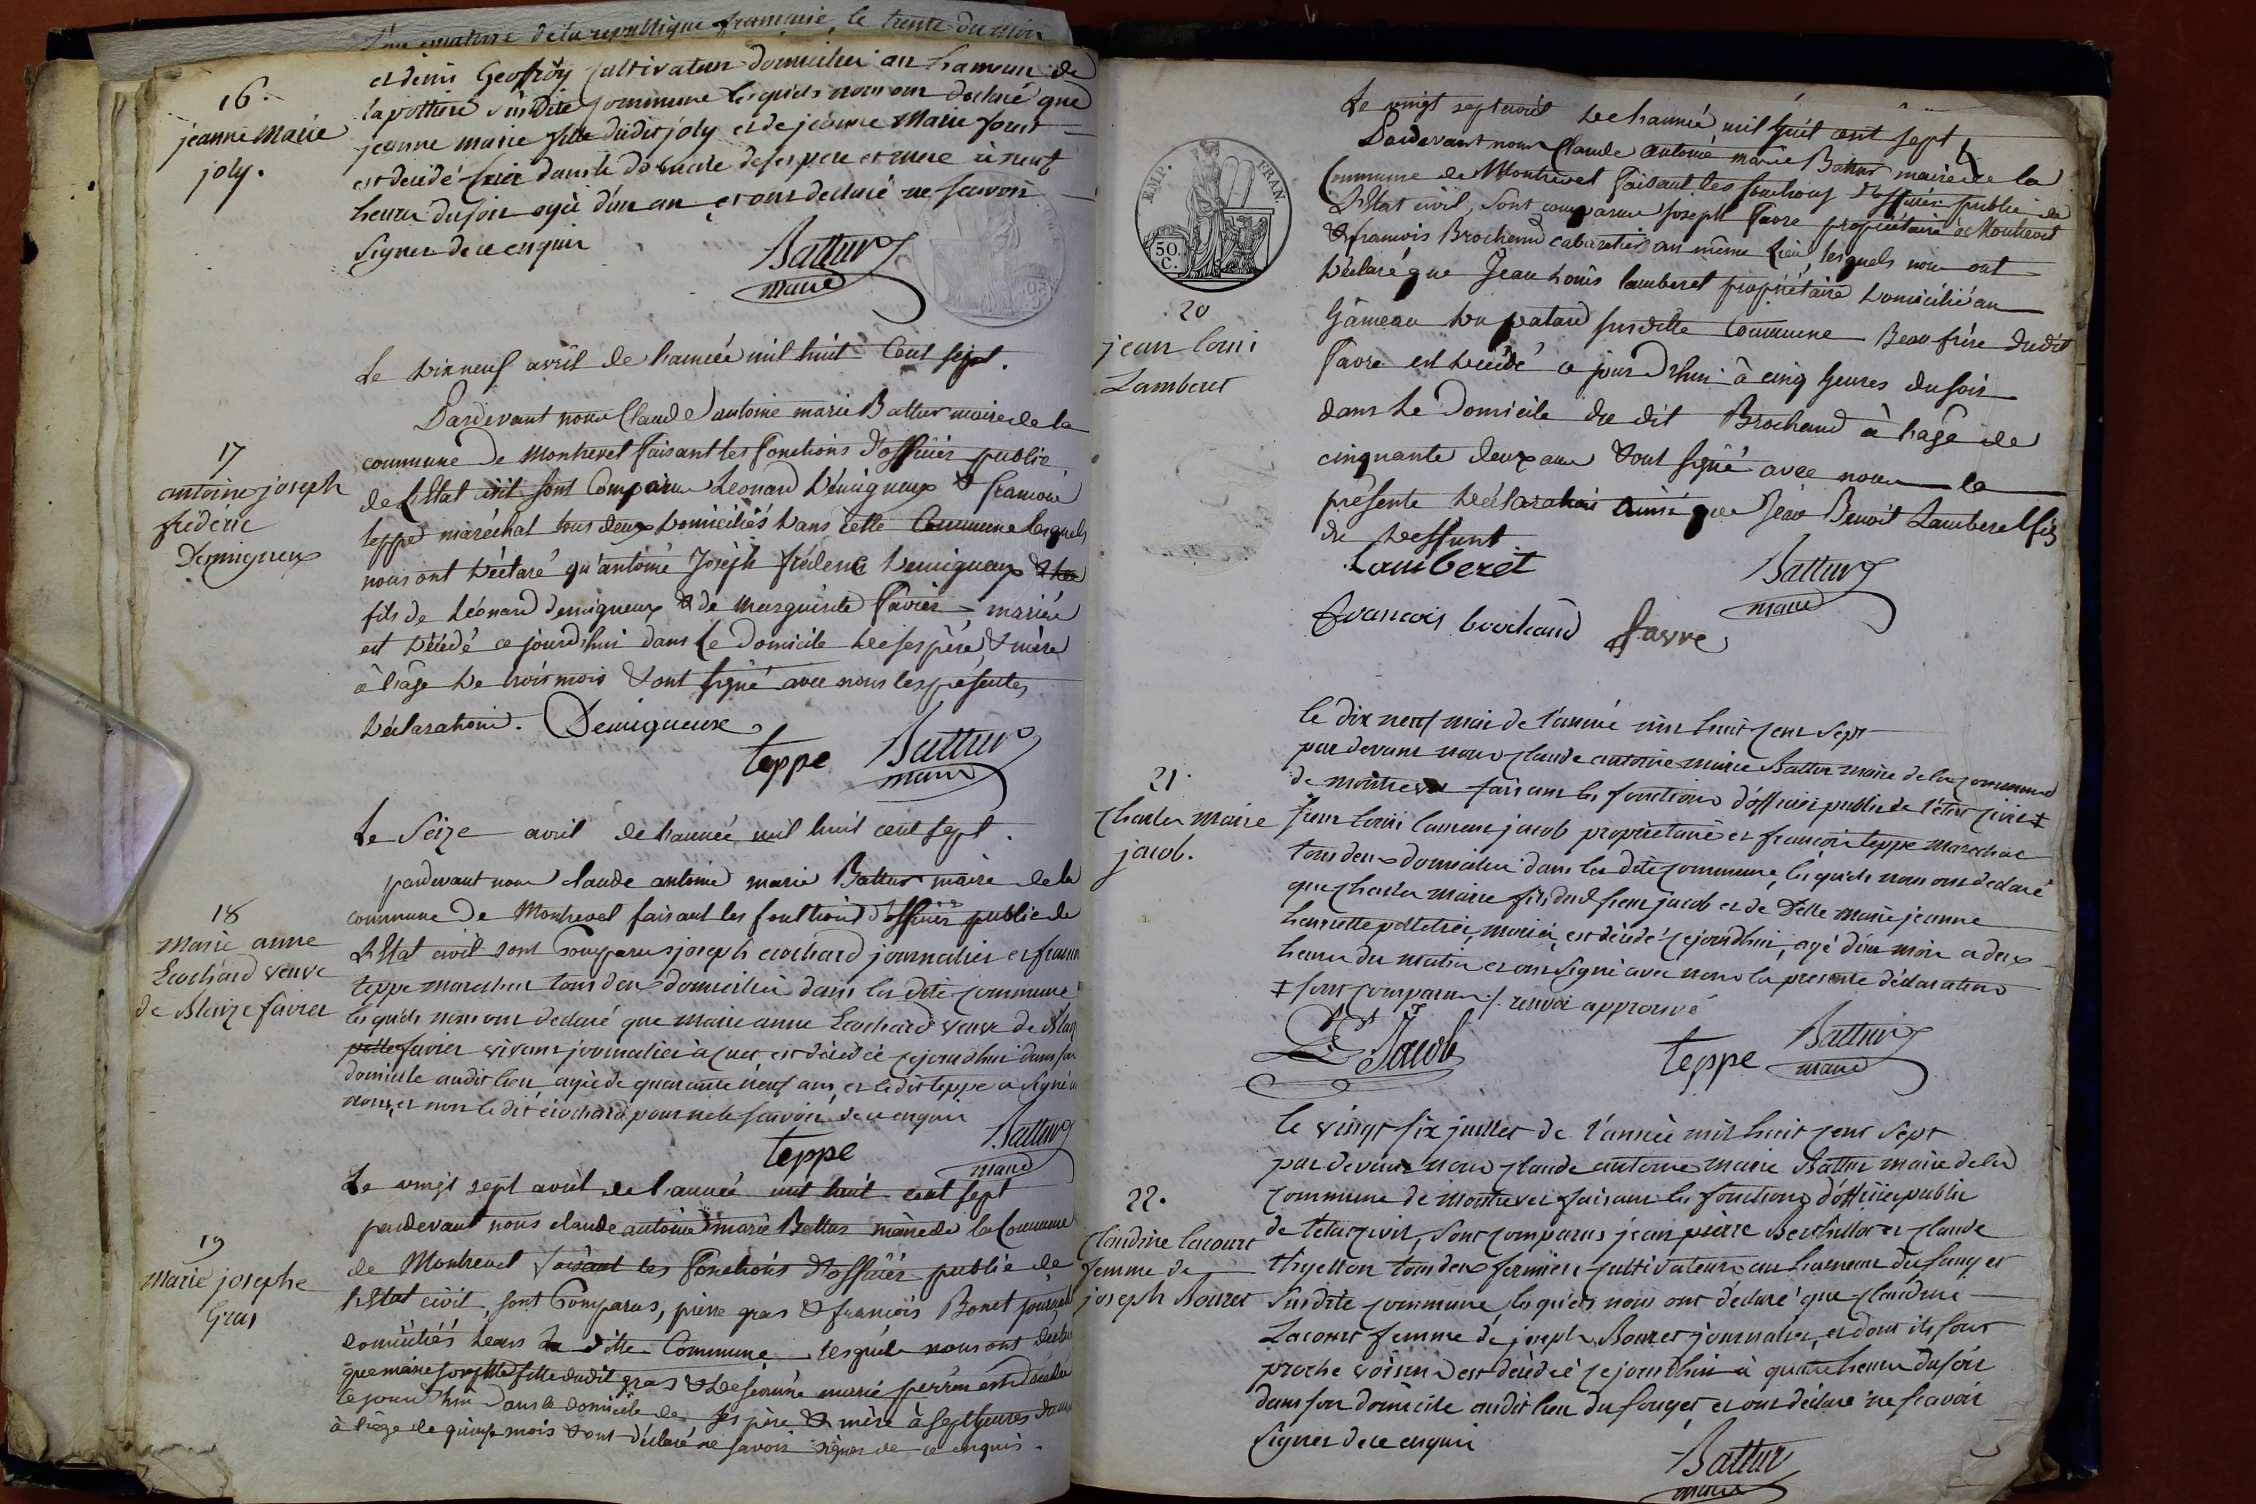 de la republique francaise, le trente du mois
et denis Geoffroy cultivateur domicilié au hameau de
16.
jeanne Marie
joly.
la potiere susdite commune lesquels nous ont declaré que
jeanne marie fille dudit joly et de jeanne Marie
est decidé hier dans le domicile de ses pere et mere à neuf
heures du soir agée d'un an et ont declaré ne savoir
signer de ce enquis
Battur
maire
Le dix neuf avril de l'année mil huit cent sept.
Pardevant nous Claude antoine marie Battur maire de la
17
antoine joseph
fréderic
Demigneux
commune de Montrevel faisant les fonctions d'officier public
de l'Etat civil sont comparus Leonard Démigneux & francois
teppe maréchal tous deux domiciliés dans cette commune lesquels
nous ont déclaré qu'antoine Joseph fréderic Demigneux
fils de Léonard demigneux & de Marguerite Favier mariés
est décédé ce jourd'hui dans le domicile de ses père & mère
à l'age de trois mois & ont signé avec nous les présentes
déclarations. Demigneux
teppe Battur
maire
Le Seize avril de l'année mil huit cent sept.
pardevant nous claude antoine marie Battur maire de la
18
Marie anne
Ecochard veuve
de Blaize favier
commune de Montrevel faisant les fonctions d'officier public de
l'Etat civil sont comparus joseph ecochard journalier et francois
teppe marechal tous deux domicilié dans la dite commune
lesquels nous ont declaré que marie anne Ecochard veuve de Blaize
favier vivant journalier à est décédée ce jourd'hui dans son
domicile audit lieu agée de quarante neuf ans, et le dit teppe a signé avec
nous, et non le dit écochard pour ne le savoir, de ce enquis
teppe Battur
maire
Le vingt sept avril de l'année mil huit cent sept
pardevant nous claude antoine marie Battur maire de la Commune
19
Marie josephe
Gras
de Montrevel faisant les fonctions d'officier public de
l'Etat civil, sont comparus, pierre gras & françois Bonet
domiciliés dans la ditte Commune lesquels nous ont declaré
que marie josephte fille dudit gras & de jeanne marie perrin est décédée
ce jourd'hui dans le domicile de ses père & mère à sept heures
à l'age de quinze mois & ont déclaré ne savoir signer de ce enquis.
Le vingt sept avril de l'année mil huit cent sept
Pardevant nous Claude antoine marie Battur maire de la
EMP. FRAN.
50 C.
Commune de Montrevel faisant les fonctions d'officier public de
L'Etat civil, sont comparus joseph Favre propriétaire à Montrevel
& francois Brochand cabaretier au même lieu, lesquels nous ont
déclaré que Jean Louis lamberet propriétaire domicilié au
20
jean louis
Lamberet
hameau du patard susditte Commune Beau frère dudit
Favre est décédé ce jourd'hui à cinq heures du soir
dans le domicile du dit Brochand à l'age de
cinquante deux ans & ont signé avec nous la
présente déclaration ainsi que Jean Benoit Lamberet fils
du deffunt
Lamberet Battur
maire
francois brochand favre
le dix neuf mai de l'année mil huit cent sept
par devant nous claude antoine marie Battur maire de la commune
21.
Charles Marie
jacob.
de montrevel faisant les fonctions d'officier public de l'état civil ‡
jean louis jacob propriétaire et francois teppe marechal
tous deux domicilié dans la dite commune, lesquels nous ont declaré
que charles marie fils dud sieur jacob et de Delle marie jeanne
henriette pelletier, mariés, est décédé ce jourd'hui, agé d'un mois a deux
heures du matin et ont signé avec nous la presente déclaration
‡ sont comparus /. renvoi approuvé
Jacob teppe Battur
maire
le vingt six juillet de l'année mil huit cent sept
par devant nous claude antoine marie Battur maire de la
22.
Claudine lacourt
femme de
joseph Bouret
commune de montrevel faisant les fonctions d'officier public
de l'état civil, sont comparus jean pierre Berthillot et claude
thyellon tous deux fermiers cultivateurs au hameau du souget
susdite commune, lesquels nous ont declaré que claudine
Lacourt femme de joseph Bouret journalier, et dont ils sont
proche voisins est décédée ce jourd'hui à quatre heures du soir
dans son domicile audit lieu du souget et ont déclaré ne scavoir
signer de ce enquis
Battur
maire